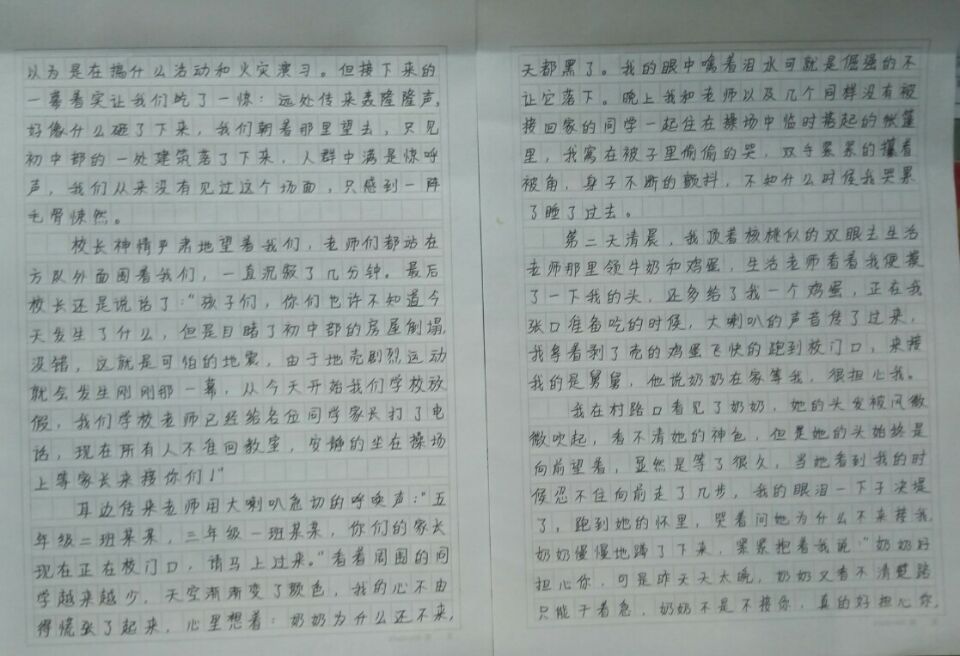 以为是在搞什么活动和火灾演习。但接下来的
一幕着实让我们吃了一惊：远处传来轰隆隆声，
好像什么砸了下来，我们朝着那里望去，只见
初中部的一处建筑落了下来，人群中满是惊呼
声，我们从来没有见过这个场面，只感到一阵
毛骨悚然。
校长神情严肃地望着我们，老师们都站在
方队外面围着我们，一直沉寂了几分钟。最后
校长还是说话了：“孩子们，你们也许不知道今
天发生了什么，但是目睹了初中部的房屋倒塌，
没错，这就是可怕的地震，由于地壳剧烈运动
就会发生刚刚那一幕，从今天开始我们学校放
假，我们学校老师已经给各位同学家长打了电
话，现在所有人不准回教室，安静的坐在操场
上等家长来接你们！”
耳边传来老师用大喇叭急切的呼唤声：“五
年级二班某某，三年级一班某某，你们的家长
现在正在校门口，请马上过来。”看着周围的同
学越来越少，天空渐渐变了颜色，我的心不由
得慌张了起来，心里想着：奶奶为什么还不来，
天都黑了。我的眼中噙着泪水可就是倔强的不
让它落下。晚上我和老师以及几个同样没有被
接回家的同学一起住在操场中临时搭起的帐篷
里，我窝在被子里偷偷的哭，双手紧紧的攥着
被角，身子不断的颤抖，不知什么时候我哭累
了睡了过去。
第二天清晨，我顶着核桃似的双眼去生活
老师那里领牛奶和鸡蛋，生活老师看着我便摸
了一下我的头，还多给了我一个鸡蛋，正在我
张口准备吃的时候，大喇叭的声音传了过来，
我拿着剥了壳的鸡蛋飞快的跑到校门口，来接
我的是舅舅，他说奶奶在家等我，很担心我。
我在村路口看见了奶奶，她的头发被风微
微吹起，看不清她的神色，但是她的头始终是
向前望着，显然是等了很久，当她看到我的时
候忍不住向前走了几步，我的眼泪一下子决堤
了，跑到她的怀里，哭着问她为什么不来接我，
奶奶慢慢地蹲了下来，紧紧抱着我说：“奶奶好
担心你，可是昨天天太晚，奶奶又看不清楚路
只能干着急，奶奶不是不接你，真的好担心你，